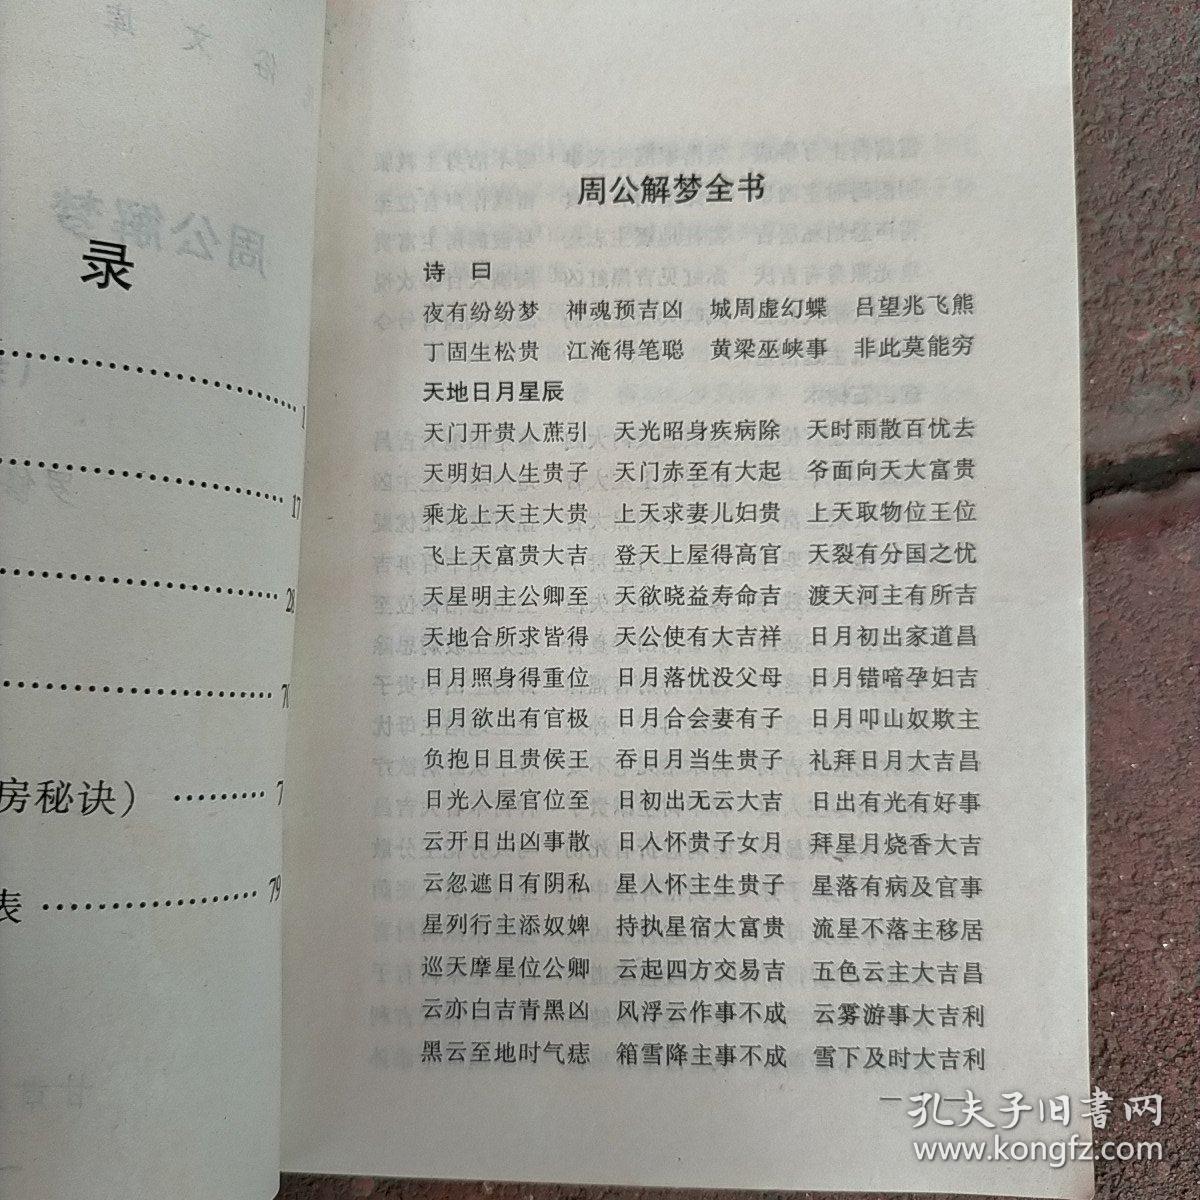 录
1
17
28
70
房秘诀）
7
表
79
周公解梦全书
诗 曰
夜有纷纷梦 神魂预吉凶 城周虚幻蝶 吕望兆飞熊
丁固生松贵 江淹得笔聪 黄梁巫峡事 非此莫能穷
天地日月星辰
天门开贵人蔗引 天光昭身疾病除 天时雨散百忧去
天明妇人生贵子 天门赤至有大起 爷面向天大富贵
乘龙上天主大贵 上天求妻儿妇贵 上天取物位王位
飞上天富贵大吉 登天上屋得高官 天裂有分国之忧
天星明主公卿至 天欲晓益寿命吉 渡天河主有所吉
天地合所求皆得 天公使有大吉祥 日月初出家道昌
日月照身得重位 日月落忧没父母 日月错喑孕妇吉
日月欲出有官极 日月合会妻有子 日月叩山奴欺主
负抱日且贵侯王 吞日月当生贵子 礼拜日月大吉昌
日光人屋官位至 日初出无云大吉 日出有光有好事
云开日出凶事散 日人怀贵子女月 拜星月烧香大吉
云忽遮日有阴私 星人怀主生贵子 星落有病及官事
星列行主添奴婢 持执星宿大富贵 流星不落主移居
巡天摩星位公卿 云起四方交易吉 五色云主大吉昌
云亦白吉青黑凶 风浮云作事不成 云雾游事大吉利
黑云至地时气痣 箱雪降主事不成 雪下及时大吉利
孔夫子旧书网
www.kongfz.com